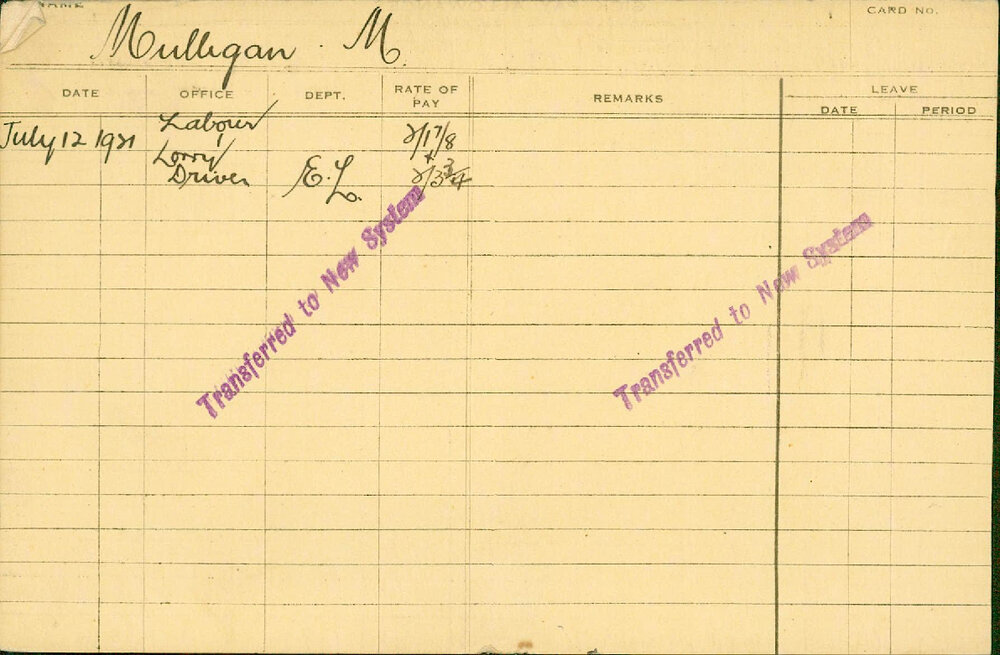 NAME
CARD NO.
Mulligan. M.
DATE
OFFICE
DEPT.
RATE OF PAY
REMARKS
LEAVE
DATE
PERIOD
July 12 1921
Labour
Lorry
Driver
E.L.
2/17/8
+
2/3 3/4
Transferred to New System
Transferred to New System